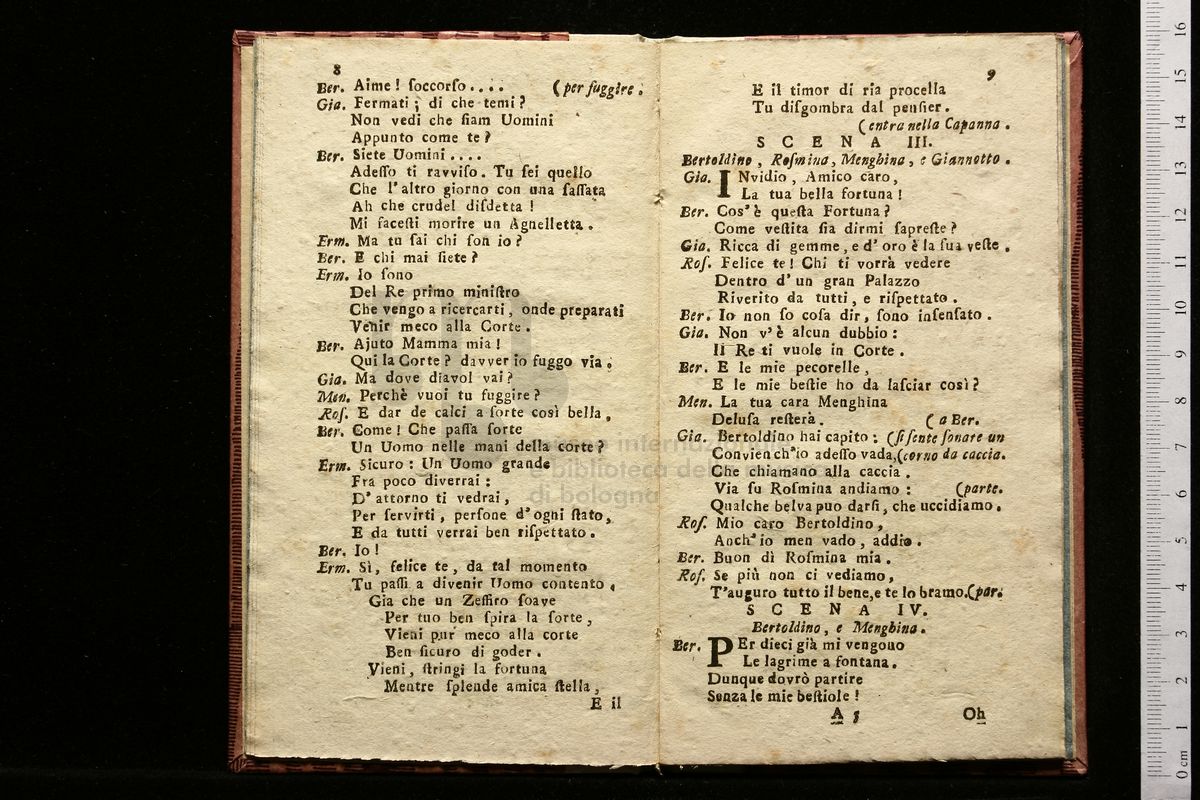 8
Ber. Aime! ſoccorſo.... (per fuggire.
Gia. Fermati; di che temi?
Non vedi che ſiam Uomini
Appunto come te?
Ber. Siete Uomini....
Adeſſo ti ravviſo. Tu ſei quello
Che l'altro giorno con una ſaſſata
Ah che crudel diſdetta!
Mi faceſti morire un Agnelletta.
Erm. Ma tu ſai chi ſon io?
Ber. E chi mai ſiete?
Erm. Io ſono
Del Re primo miniſtro
Che vengo a ricercarti, onde preparati
Venir meco alla Corte.
Ber. Ajuto Mamma mia!
Qui la Corte? davver io fuggo via.
Gia. Ma dove diavol vai?
Men. Perchè vuoi tu fuggire?
Roſ. E dar de calci a ſorte così bella.
Ber. Come! Che paſſa ſorte
Un Uomo nelle mani della corte?
Erm. Sicuro: Un Uomo grande
Fra poco diverrai:
D'attorno ti vedrai,
Per ſervirti, perſone d'ogni ſtato,
E da tutti verrai ben riſpettato.
Ber. Io!
Erm. Sì, felice te, da tal momento
Tu paſſi a divenir Uomo contento,
Gia che un Zeffiro ſoave
Per tuo ben ſpira la ſorte,
Vieni pur meco alla corte
Ben ſicuro di goder.
Vieni, ſtringi la fortuna
Mentre ſplende amica ſtella,
E il
9
E il timor di ria procella
Tu diſgombra dal penſier.
(entra nella Capanna.
SCENA III.
Bertoldino, Roſmina, Menghina, e Giannotto.
Gia. INvidio, Amico caro,
La tua bella fortuna!
Ber. Cos'è queſta Fortuna?
Come veſtita ſia dirmi ſapreſte?
Gia. Ricca di gemme, e d'oro è la ſua veſte.
Roſ. Felice te! Chi ti vorrà vedere
Dentro d'un gran Palazzo
Riverito da tutti, e riſpettato.
Ber. Io non ſo coſa dir, ſono inſenſato.
Gia. Non v'è alcun dubbio:
Il Re ti vuole in Corte.
Ber. E le mie pecorelle,
E le mie beſtie ho da laſciar così?
Men. La tua cara Menghina
Deluſa reſterà. (a Ber.
Gia. Bertoldino hai capito: (ſi ſente ſonare un
Convien ch'io adeſſo vada,(corno da caccia.
Che chiamano alla caccia.
Via ſu Roſmina andiamo: (parte.
Qualche belva puo darſi, che uccidiamo.
Roſ. Mio caro Bertoldino,
Anch'io men vado, addio.
Ber. Buon dì Roſmina mia.
Roſ. Se più non ci vediamo,
T'auguro tutto il bene,e te lo bramo.(par.
SCENA IV.
Bertoldino, e Menghina.
Ber. PEr dieci già mi vengono
Le lagrime a fontana.
Dunque dovrò partire
Senza le mie beſtiole!
A 5 Oh